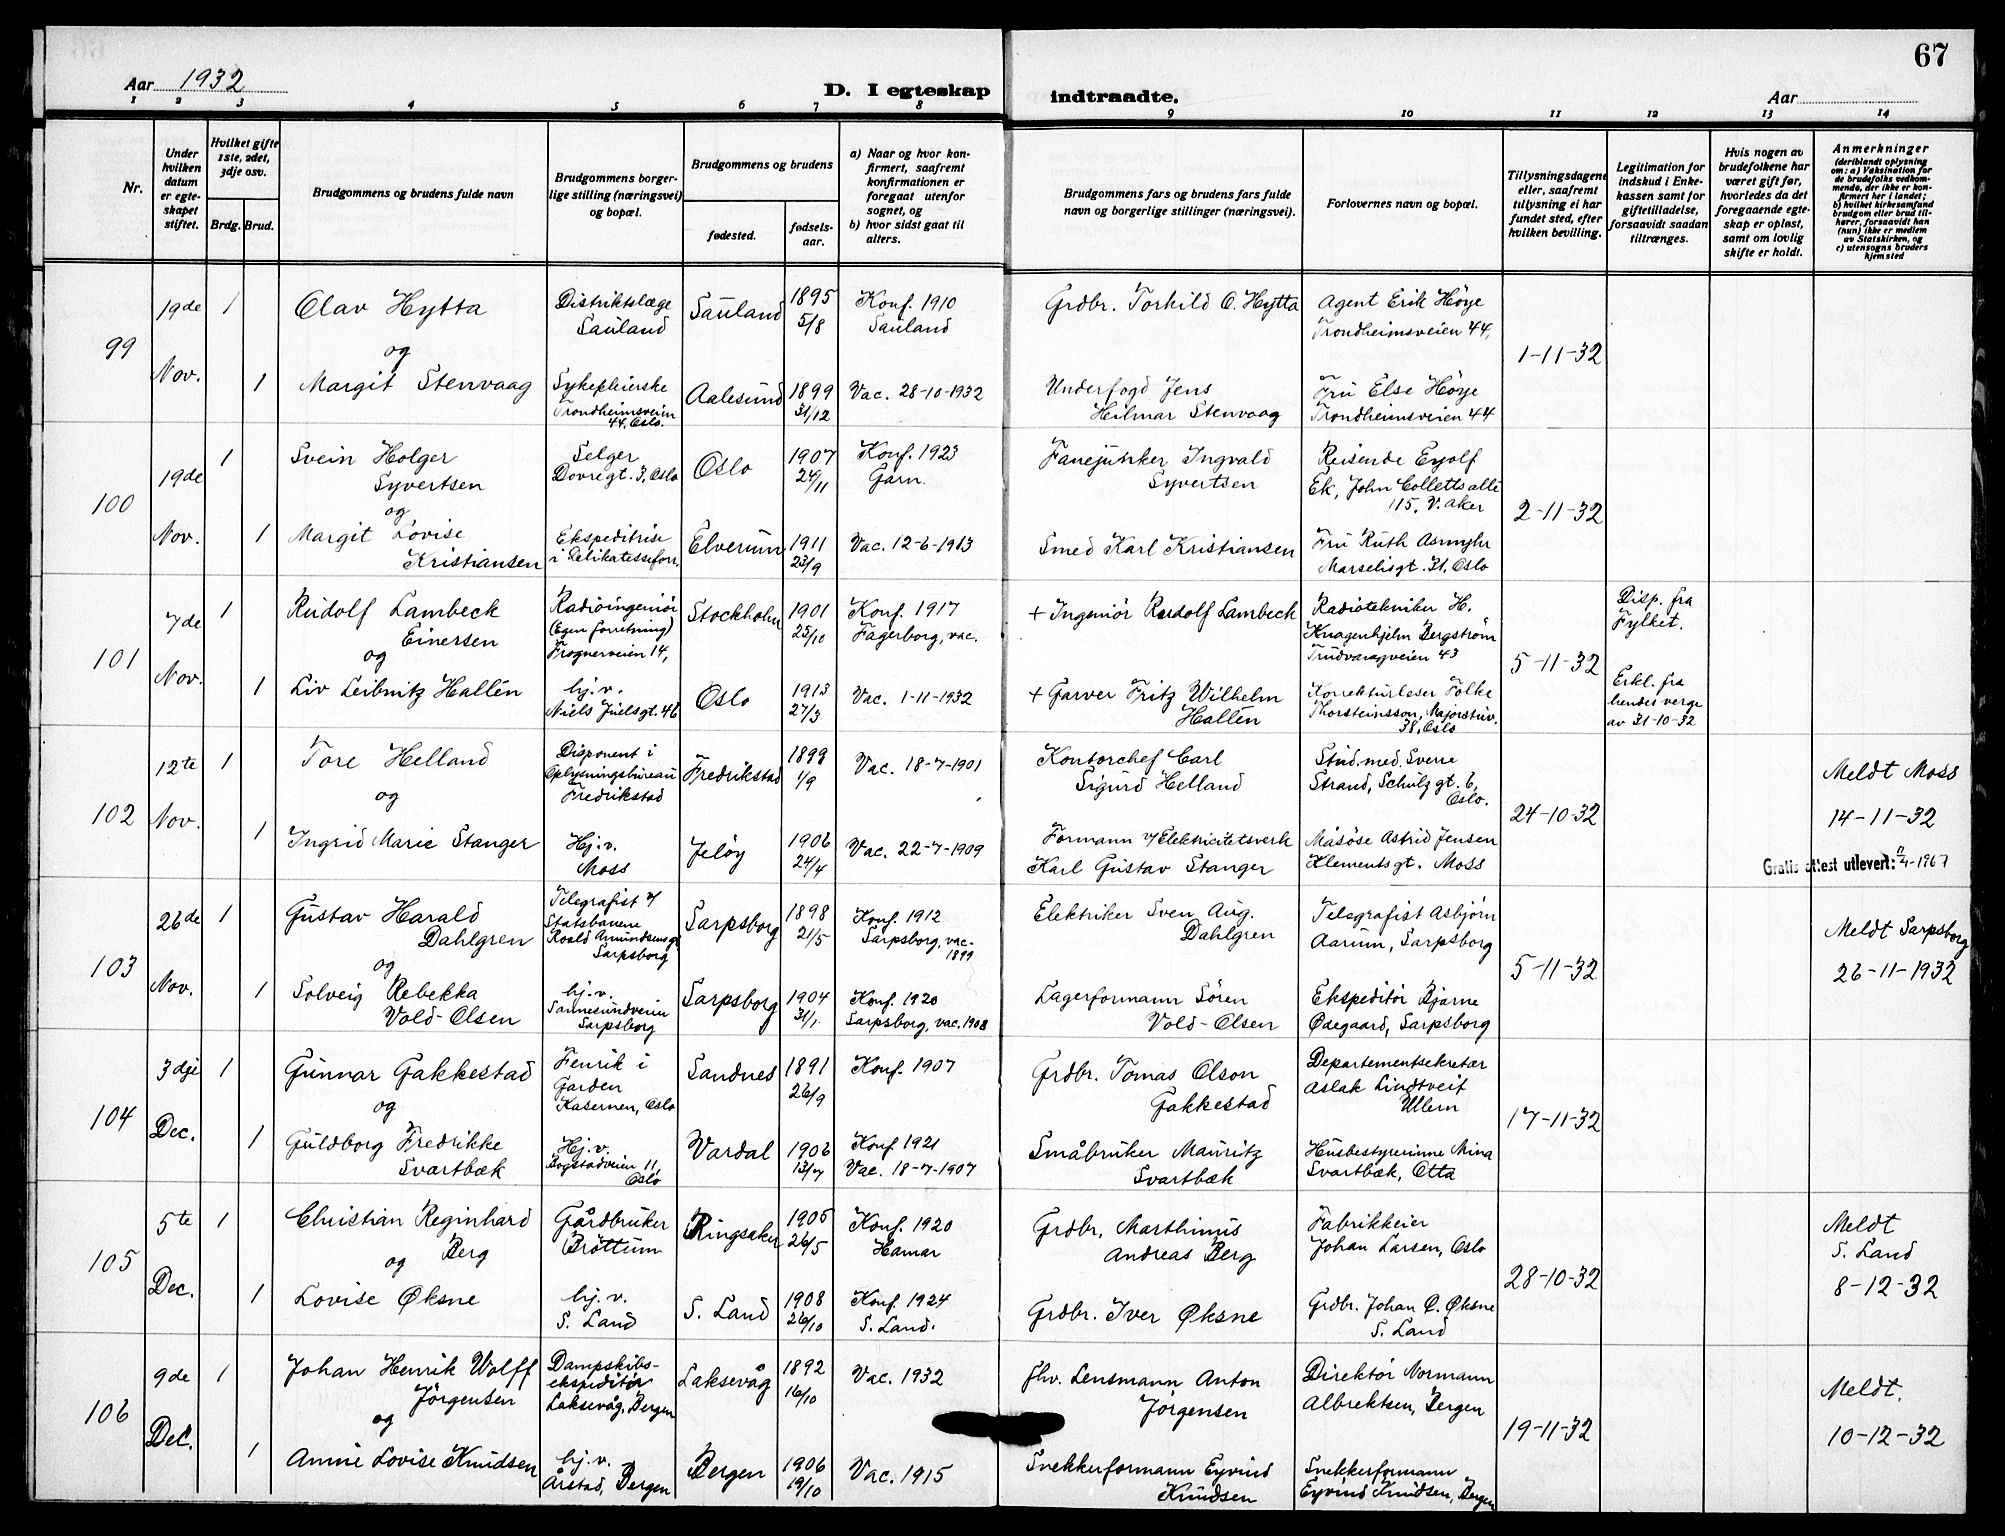 67
Aar 1932
D. I egteskap indtraadte.
Aar
1 2 3 4 5 6 7 8 9 10 11 12 13 14
Nr.
Under hvilken datum er egteskapet stiftet.
Hvilket gifte 1ste, 2det, 3dje osv.
Brdg. Brud.
Brudgommens og brudens fulde navn
Brudgommens borgerlige stilling (næringsvei) og bopæl.
Brudgommens og brudens
fødested.
fødsels-aar.
a) Naar og hvor konfirmert, saafremt konfirmationen er foregaat utenfor sognet, og
b) hvor sidst gaat til alters.
Brudgommens fars og brudens fars fulde navn og borgerlige stillinger (næringsvei).
Forlovernes navn og bopæl.
Tillysningsdagene eller, saafremt tillysning ei har fundet sted, efter hvilken bevilling.
Legitimation for indskud i Enkekassen samt for giftetilladelse, forsaavidt saadan tiltrænges.
Hvis nogen av brudefolkene har været gift før, hvorledes da det foregaaende egteskap er opløst, samt om lovlig skifte er holdt.
Anmerkninger
(deriblandt oplysning om: a) Vaksination for de brudefolks vedkommende, der ikke er konfirmert her i landet; b) hvilket kirkesamfund brudgom eller brud tilhører, forsaavidt han (hun) ikke er medlem av Statskirken, og c) utensogns bruders hjemsted
99
19de Nov.
1
Olav Hytta
og
Distriktslæge
Sauland
Sauland
1895
5/8
Konf. 1910
Sauland
Grdbr. Torkild O. Hytta
Agent Erik Høye
Trondheimsveien 44,
1-11-32
1
Margit Stenvaag
Sykepleierske
Trondheimsveien
44, Oslo.
Aalesund
1899
31/12
Vac. 28-10-1932
Underfogd Jens
Hilmar Stenvaag
Fru Else Høye
Trondheimsveien 44
100
19de Nov.
1
Svein Holger
Syvertsen
og
Selger
Dovregt. 3, Oslo
Oslo
1907
24/11
Konf. 1923
Garn.
Fanejunker Ingvald
Syvertsen
Reisende Eyolf
Ek, John Colletts alle
115, V. Aker
2-11-32
1
Margit Lovise
Kristiansen
Ekspeditrise
i Delikatesseforr.
Elverum
1911
23/9
Vac. 12-6-1913
Smed Karl Kristiansen
Fru Ruth Asmyhr
Marselisgt. 31, Oslo
101
7de Nov.
1
Rudolf Lambeck
Einersen
og
Radioingeniør
(Egen forretning)
Frognerveien 14,
Stockholm
1901
25/10
Konf. 1917
Fagerborg, vac.
+ Ingeniør Rudolf Lambeck
Radiotekniker H.
Knagenhjelm Bergstrøm
Trudvangveien 43
5-11-32
Disp. fra
Fylket.
1
Liv Leibnitz Hallén
hj. v.
Niels Juelsgt. 46
Oslo
1913
27/3
Vac. 1-11-1932
+ Garver Fritz Wilhelm
Hallén
Korrekturleser Folke
Thorsteinsson, Majorstuv.
38, Oslo
Erkl. fra
hendes verge
av 31-10-32
102
12te Nov.
1
Tore Helland
og
Disponent i
Oplysningsbureau
Fredrikstad
Fredrikstad
1899
1/9
Vac. 18-7-1901
Kontorchef Carl
Sigurd Helland
Stud. med. Sverre
Strand, Schulzgt. 6,
Oslo.
24-10-32
Meldt Moss
14-11-32
1
Ingrid Marie Stanger
Hj. v.
Moss
Jeløy
1906
24/4
Vac. 22-7-1909
Formann v/Elektricitetsverk
Karl Gustav Stanger
Måsøse Astrid Jensen
Klementsgt. Moss
Gratis attest utlevert: 11/4-1967
103
26de Nov.
1
Gustav Harald
Dahlgren
og
Telegrafist v/
Statsbanene
Roald Amundsensgt
Sarpsborg
Sarpsborg
1898
21/5
Konf. 1912
Sarpsborg, vac.
1899
Elektriker Sven Aug.
Dahlgren
Telegrafist Asbjørn
Aarum, Sarpsborg
5-11-32
Meldt Sarpsborg
26-11-1932
1
Solveig Rebekka
Vold-Olsen
hj. v.
Sannesundveien
Sarpsborg
Sarpsborg
1904
31/1.
Konf. 1920
Sarpsborg, vac. 1908
Lagerformann Søren
Vold-Olsen
Ekspeditør Bjarne
Ødegaard, Sarpsborg
104
3dje Dec.
1
Gunnar Gakkestad
og
Fenrik i
Garden
Kasernen, Oslo
Sandnes
1891
26/9
Konf. 1907
Grdbr. Tomas Olson
Gakkestad
Departementsekretær
Aslak Lindtveit
Ullern
17-11-32
1
Guldborg Fredrikke
Svartbæk
Hj. v.
Bogstadveien 11,
Oslo
Vardal
1906
13/7
Konf. 1921
Vac. 18-7-1907
Småbruker Mauritz
Svartbæk
Husbestyrerinne Mina
Svartbæk, Otta
105
5te Dec.
1
Christian Reginhard
Berg
og
Gårdbruker
Brøttum
Ringsaker
1905
26/5
Konf. 1920
Hamar
Grdbr. Marthinus
Andreas Berg
Fabrikkeier
Johan Larsen, Oslo
28-10-32
Meldt
S. Land
8-12-32
1
Lovise Øksne
hj. v.
S. Land
S. Land
1908
26/10
Konf. 1924
S. Land.
Grdbr. Iver Øksne
Grdbr. Johan O. Øksne
S. Land
106
9de Dec.
1
Johan Henrik Wolff
Jørgensen
og
Dampskibs-
ekspeditør
Laksevåg, Bergen
Laksevåg
1892
16/10
Vac. 1932
fhv. Lensmann Anton
Jørgensen
Direktør Normann
Albrektsen, Bergen
19-11-32
Meldt.
10-12-32
1
Annie Lovise Knudsen
hj. v.
Årstad, Bergen
Bergen
1906
19/10
Vac. 1915
Snekkerformann Eyvind
Knudsen
Snekkerformann
Eyvind Knudsen, Bergen